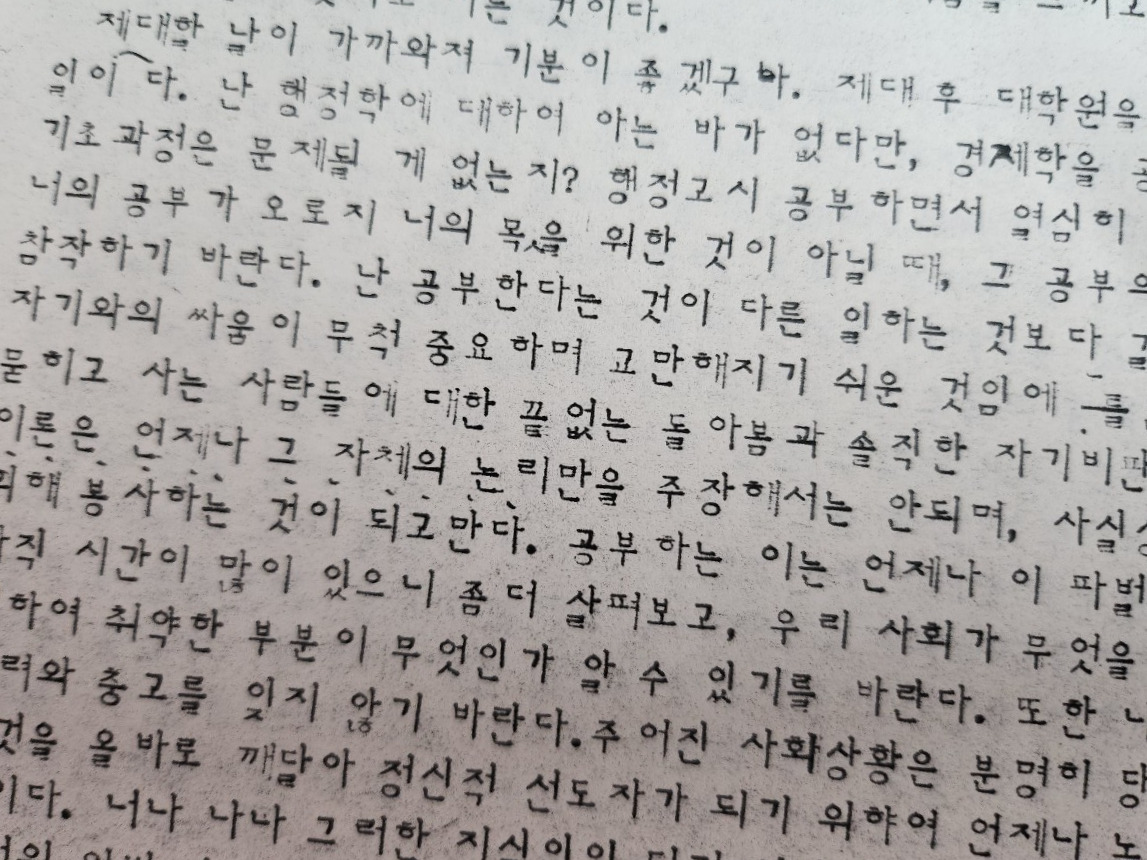 는 것이다.
제대할 날이 가까와져 기분이 좋겠구나. 제대 후 대학원을
일이다. 난 행정학에 대하여 아는 바가 없다만, 경제학을
기초과정은 문제될 게 없는지? 행정고시 공부하면서 열심히
너의 공부가 오로지 너의 목을 위한 것이 아닐 때, 그 공부
참작하기 바란다. 난 공부한다는 것이 다른 일하는 것보다
자기와의 싸움이 무척 중요하며 교만해지기 쉬운 것임에 틀
묻히고 사는 사람들에 대한 끝없는 돌아봄과 솔직한 자기비판
이론은 언제나 그 자체의 논리만을 주장해서는 안되며, 사실
해 봉사하는 것이 되고만다. 공부하는 이는 언제나 이 파벌
직 시간이 많이 있으니 좀더 살펴보고, 우리 사회가 무엇을
하여 취약한 부분이 무엇인가 알 수 있기를 바란다. 또한
려와 충고를 잊지 않기 바란다. 주어진 사회상황은 분명히
것을 올바로 깨달아 정신적 선도자가 되기 위하여 언제나
이다. 너나 나나 그러한